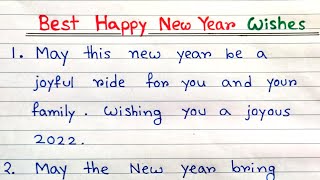 Best Happy New Year Wishes
1. May this new year be a
joyful ride for you and your
family. Wishing you a joyous
2022.
2. May the New year bring